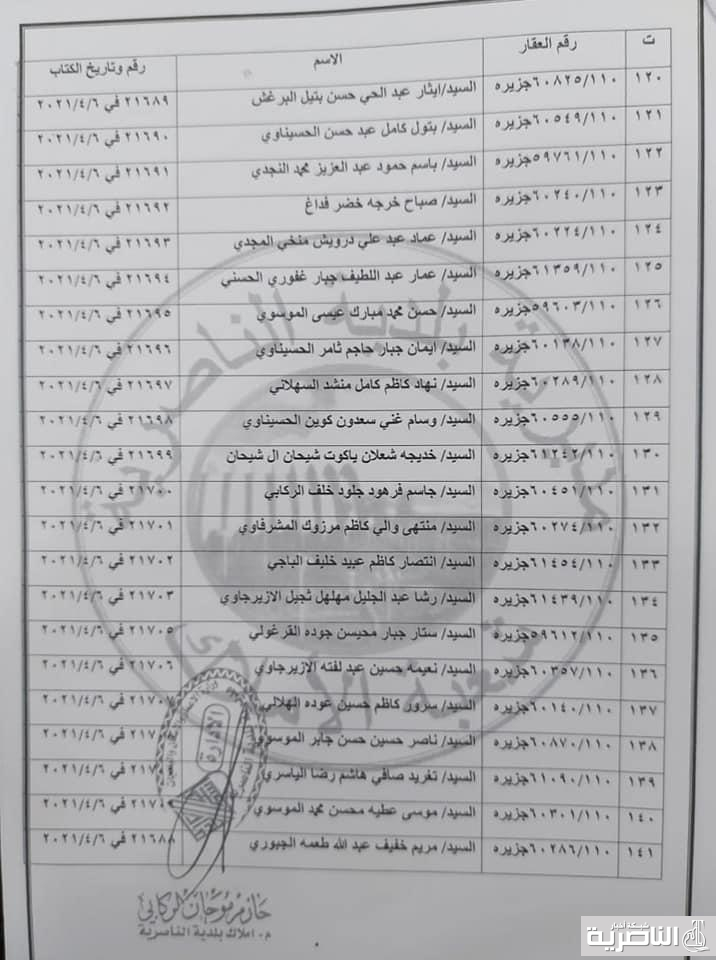 ت رقم العقار الاسم رقم وتاريخ الكتاب
١٢٠ ٦٠٨٢٥/١١٠جزيره السيد/ ايثار عبد الحي حسن بتيل البرغش ٢١٦٨٩ في ٢٠٢١/٤/٦
١٢١ ٦٠٥٤٩/١١٠جزيره السيد/ بتول كامل عبد حسن الحسيناوي ٢١٦٩٠ في ٢٠٢١/٤/٦
١٢٢ ٥٩٧٦١/١١٠جزيره السيد/ باسم حمود عبد العزيز محمد النجدي ٢١٦٩١ في ٢٠٢١/٤/٦
١٢٣ ٦٠٢٤٠/١١٠جزيره السيد/ صباح خرجه خضر فداغ ٢١٦٩٢ في ٢٠٢١/٤/٦
١٢٤ ٦٠٢٢٤/١١٠جزيره السيد/ عماد عبد علي درويش منخي المجدي ٢١٦٩٣ في ٢٠٢١/٤/٦
١٢٥ ٦١٣٥٩/١١٠جزيره السيد/ عمار عبد اللطيف جبار غفوري الحسني ٢١٦٩٤ في ٢٠٢١/٤/٦
١٢٦ ٥٩٦٠٣/١١٠جزيره السيد/ حسن محمد مبارك عيسى الموسوي ٢١٦٩٥ في ٢٠٢١/٤/٦
١٢٧ ٦٠١٣٨/١١٠جزيره السيد/ ايمان جبار حاجم ثامر الحسيناوي ٢١٦٩٦ في ٢٠٢١/٤/٦
١٢٨ ٦٠٢٨٩/١١٠جزيره السيد/ نهاد كاظم كامل منشد السهلاني ٢١٦٩٧ في ٢٠٢١/٤/٦
١٢٩ ٦٠٥٥٥/١١٠جزيره السيد/ وسام غني سعدون كوين الحسيناوي ٢١٦٩٨ في ٢٠٢١/٤/٦
١٣٠ ٦١٢٤٢/١١٠جزيره السيد/ خديجه شعلان ياكوت شيحان ال شيحان ٢١٦٩٩ في ٢٠٢١/٤/٦
١٣١ ٦٠٤٥١/١١٠جزيره السيد/ جاسم فرهود جلود خلف الركابي ٢١٧٠٠ في ٢٠٢١/٤/٦
١٣٢ ٦٠٢٧٤/١١٠جزيره السيد/ منتهى والي كاظم مرزوك المشرفاوي ٢١٧٠١ في ٢٠٢١/٤/٦
١٣٣ ٦١٤٥٤/١١٠جزيره السيد/ انتصار كاظم عبيد خليف الباجي ٢١٧٠٢ في ٢٠٢١/٤/٦
١٣٤ ٦١٤٣٩/١١٠جزيره السيد/ رشا عبد الجليل مهلهل ثجيل الازيرجاوي ٢١٧٠٣ في ٢٠٢١/٤/٦
١٣٥ ٥٩٦١٢/١١٠جزيره السيد/ ستار جبار محيسن جوده القرغولي ٢١٧٠٥ في ٢٠٢١/٤/٦
١٣٦ ٦٠٣٥٧/١١٠جزيره السيد/ نعيمه حسين عبد لفته الازيرجاوي ٢١٧٠٦ في ٢٠٢١/٤/٦
١٣٧ ٦٠١٤٠/١١٠جزيره السيد/ سرور كاظم حسين عوده الهلالي في ٢٠٢١/٤/٦
١٣٨ ٦٠٨٧٠/١١٠جزيره السيد/ ناصر حسين حسن جابر الموسوي في ٢٠٢١/٤/٦
١٣٩ ٦١٠٩٠/١١٠جزيره السيد/ تغريد صافي هاشم رضا الياسري في ٢٠٢١/٤/٦
١٤٠ ٦٠٣٠١/١١٠جزيره السيد/ موسى عطيه محسن محمد الموسوي في ٢٠٢١/٤/٦
١٤١ ٦٠٢٨٦/١١٠جزيره السيد/ مريم خفيف عبد الله طعمه الجبوري ٢١٦٨٨ في ٢٠٢١/٤/٦
مديرية بلدية الناصرية
شعبة الأملاك
الادارة
حازم موحان الركابي
م. املاك بلدية الناصرية
شبكة اخبار
الناصرية